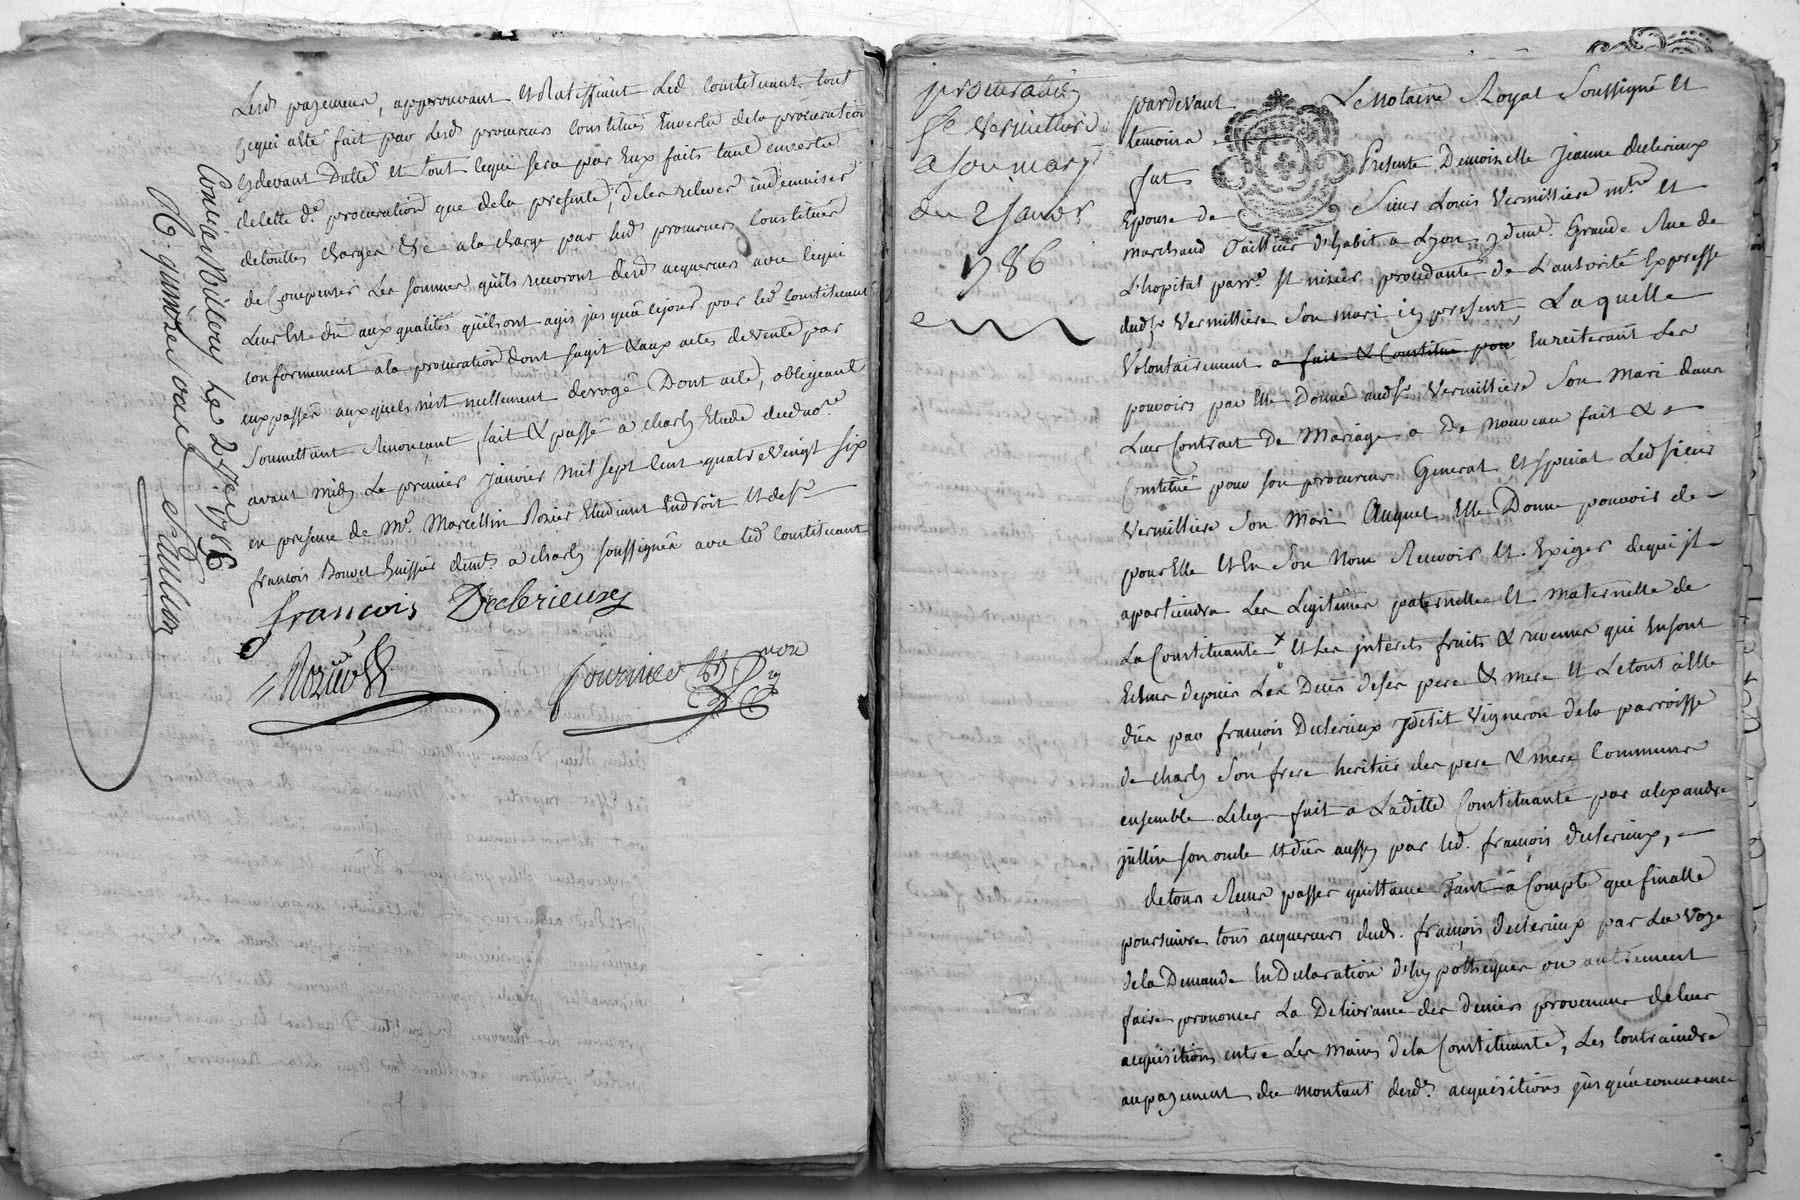 Lesd payemens, approuvant et Ratiffiant Led constituant tout
cequi a été fait par Lesd procureurs constitués Envertu dela procuration
cydevant Dattée et tout cequi sera par Eux faits tant envertu
decette de. procuration que dela presente, deles relever indemniser
detouttes charges &c a la charge par lesd procureurs constitués
de les sommes quils recevront desd acquereurs avec cequi
Leur est du aux qualités quils ont agis jusquà cejour par led constituant
conformement a la procuration dont sagit & aux actes devente par
eux passés auxquels n'est nullement derogé Dont acte, obligeant
Soumettant Renonçant fait & passé a charly Etude dud no.re
avant midy Le premier Janvier mil sept cent quatre vingt six
en presence de Me. Marcellin Rozier Etudiant En droit et de sr
françois Bouvet huissier demt a charly soussignés avec led constituant
françois Declerieux
Rozier
fournier
Conlé a Millery Le 2 Jer 1786
R. quinze sols
procuration
De Vermilliere
a son mary
du 2 Janvr
1786
pardevant Le Notaire Royal Soussigné et
temoins
fut Presente Demoiselle Jeanne declerieux
Epouse de Sieur Louis Vermilliere mtre et
marchand Tailleur d'habit a Lyon y demt. Grande Rue de
L'hopital parr.e St nizier, procedante de L'autorité Expresse
dud Sr Vermilliere Son mari icy present, Laquelle
Volontairement a fait & Constitué pour En reiterant Les
pouvoirs par Elle Donné aud Sr Vermilliere Son Mari dans
Leur Contract de Mariage a De nouveau fait &
Constitué pour son procureur General et special Led sieur
Vermilliere Son Mari Auquel Elle Donne pouvoir de
pour Elle et En Son Nom Recevoir et Exiger dequi il
apartiendra Les Legitimes paternelle et maternelle de
La Constituante x et Les interets fruits & revenus qui En sont
Echus depuis Les Deces de ses pere & mere et Le tout a Elle
dûs par françois Duclerieux petit Vigneron de la parroisse
de charly Son frere heritier des pere & mere Communs
ensemble Le legs fait a Laditte Constituante par alexandre
jullin son oncle et dûs aussy par led. françois duclerieux,
detous Reçus passer quittance Tant a Compte que finalle
poursuivre tous acquereurs dud. françois declerieux par La voye
de la Demande En Declaration d'hypotheques ou autrement
faire prononcer La Delivrance des deniers provenans de leur
acquisitions entre Les mains dela Constituante, Les contraindre
au payement du montant desd. acquisitions jusqu'a concurrence